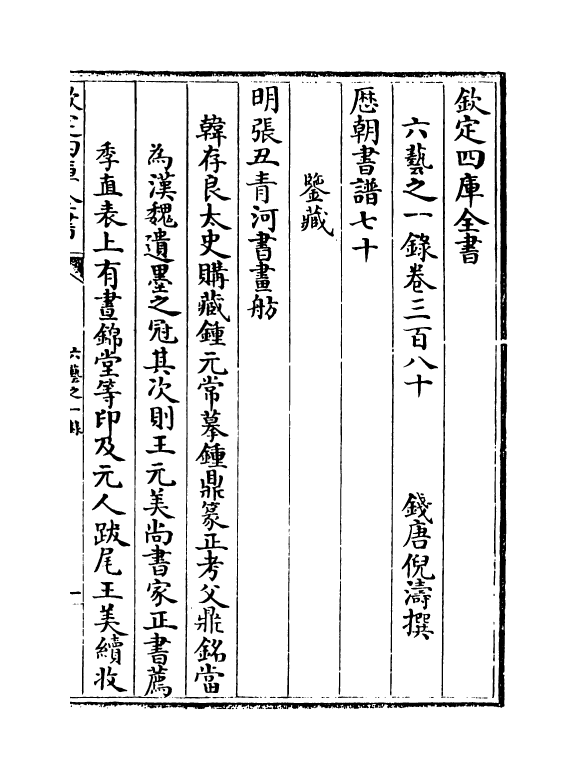 欽定四庫全書
六藝之一錄卷三百八十　錢唐倪濤撰
歷朝書譜七十
鑒藏
明張丑青河書畫舫
韓存良太史購藏鍾元常摹鍾鼎篆正考父鼎銘當
為漢魏遺墨之冠其次則王元美尚書家正書薦
季直表上有晝錦堂等印及元人跋尾王美續收
欽定四庫全書
六藝之一錄
一